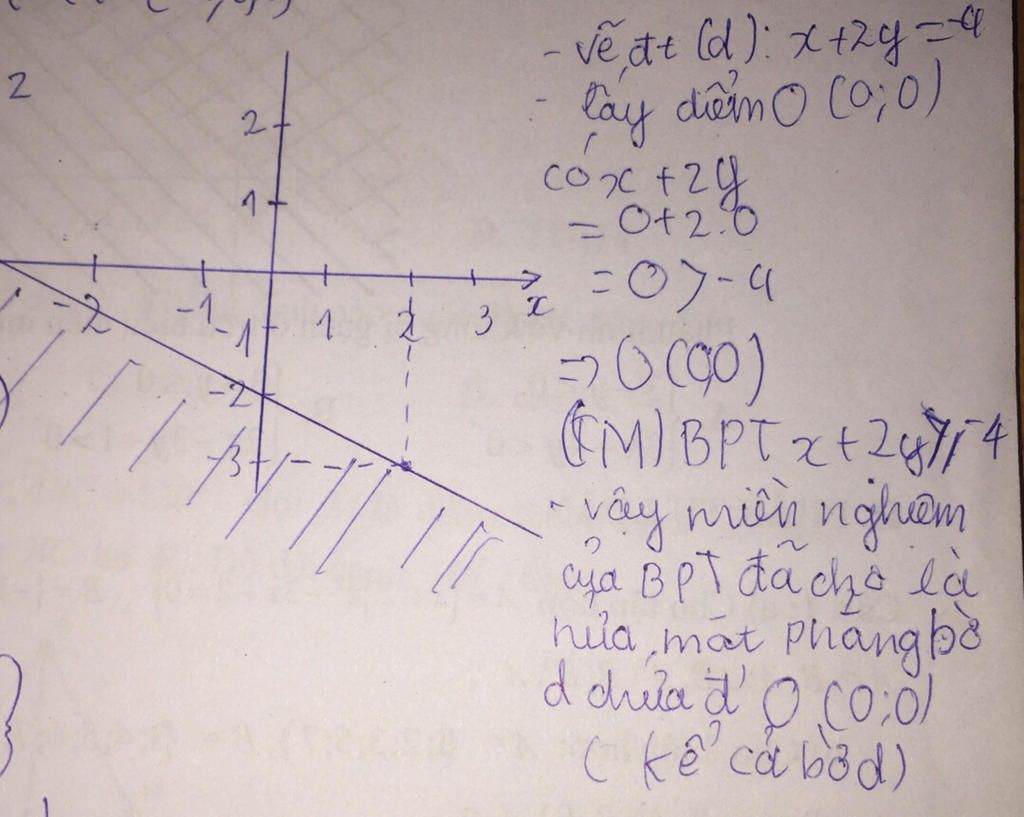 - vẽ đt (d): x+2y=-4
- lấy điểm O (0;0)
có x+2y
= 0+2.0
= 0 > -4
=> O(0,0)
(TM) BPT x+2y ≥ -4
- vậy miền nghiệm
của BPT đã cho là
nửa mặt phẳng bờ
d chứa đ' O (0;0)
( kể cả bờ d)
2
2
1
-2 -1 1 2 3 x
-1
-2
-3